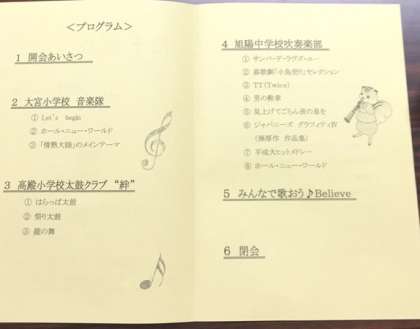 ＜プログラム＞
1 開会あいさつ
2 大宮小学校 音楽隊
① Let's begin
② ホール・ニュー・ワールド
③ 「情熱大陸」のメインテーマ
3 高殿小学校太鼓クラブ “絆”
① はらっぱ太鼓
② 祭り太鼓
③ 龍の舞
4 旭陽中学校吹奏楽部
① サンバ・デ・ラヴズ・ユー
② 喜歌劇「小鳥売り」セレクション
③ TT（Twice）
④ 男の勲章
⑤ 見上げてごらん夜の星を
⑥ ジャパニーズ グラフィティⅣ
⑦ 平成大ヒットメドレー
⑧ ホール・ニュー・ワールド
5 みんなで歌おう♪Believe
6 閉会